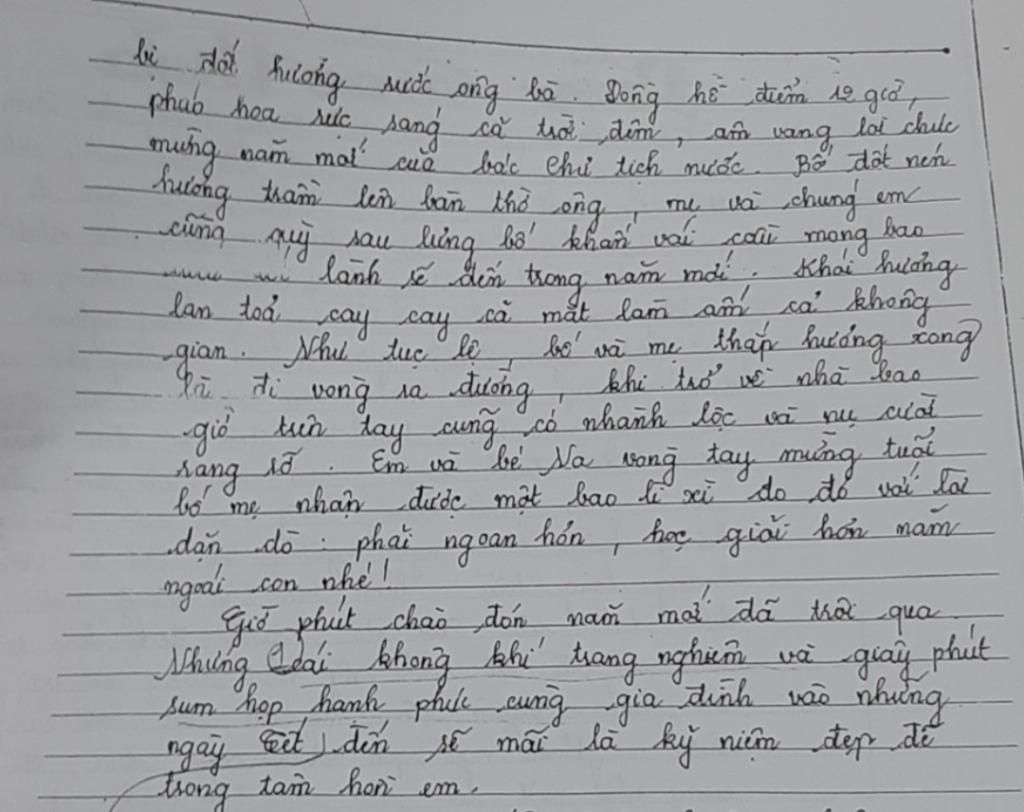 bị đốt hương rước ông bà. Đồng hồ điểm 12 giờ,
pháo hoa rực sáng cả trời đêm, âm vang lời chúc
mừng năm mới của bác chủ tịch nước. Bố đốt nén
hương trầm lên bàn thờ ông, mẹ và chúng em
cũng quỳ sau lưng bố khấn vái cầu mong bao
lành sẽ đến trong năm mới. Khói hương
lan toả cay cay cả mắt làm ấm cả không
gian. Như tục lệ, bố và mẹ thắp hương xong
là đi vòng ra đường, khi trở về nhà bao
giờ trên tay cũng có nhành lộc và nụ cười
rạng rỡ. Em và bé Na vòng tay mừng tuổi
bố mẹ nhận được một bao lì xì đo đỏ với lời
dặn dò : phải ngoan hơn, học giỏi hơn năm
ngoái con nhé!
Giờ phút chào đón năm mới đã trôi qua
Nhưng cái không khí trang nghiêm và giây phút
sum họp hạnh phúc cùng gia đình vào những
ngày Tết đến sẽ mãi là kỷ niệm đẹp đẽ
trong tâm hồn em.